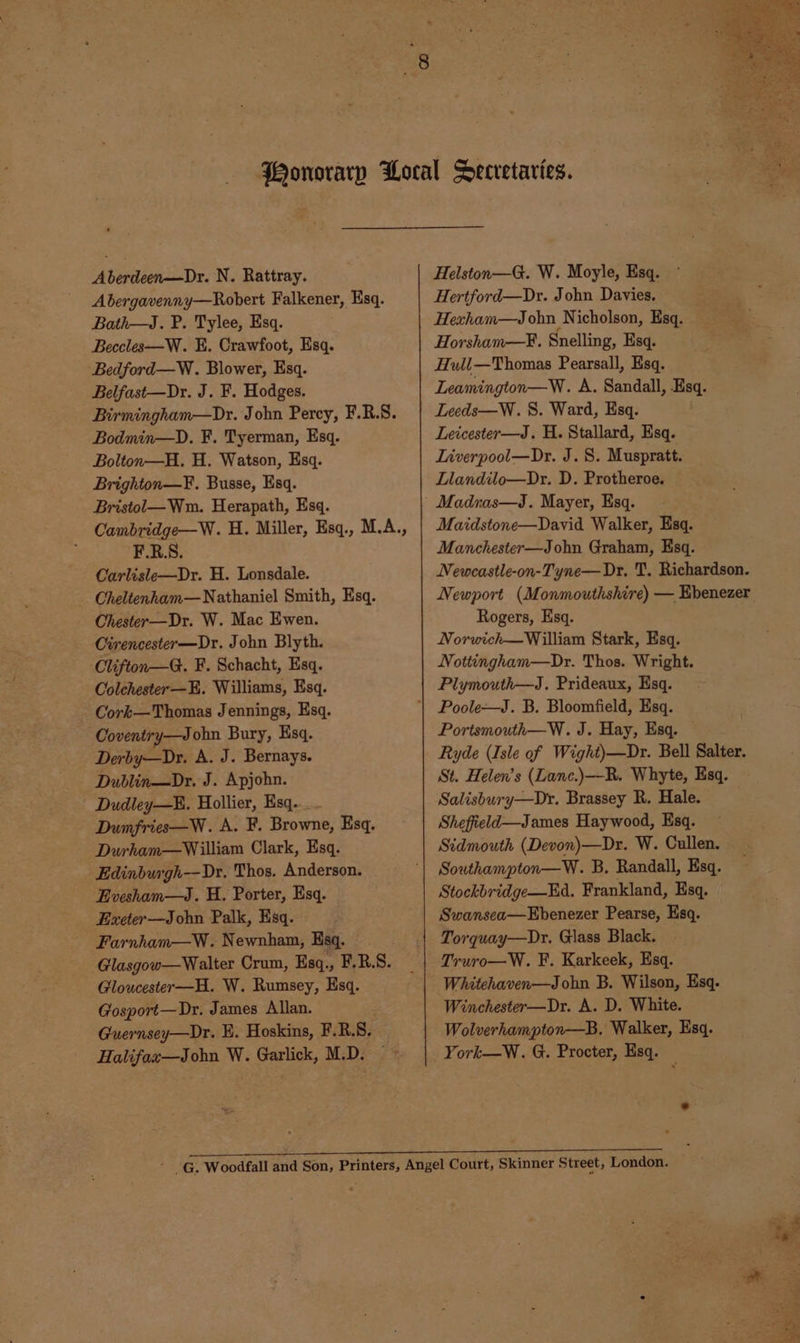 8
Honorary Local Secretaries.
Aberdeen—Dr. N. Rattray.
Abergavenny—Robert Falkener, Esq.
Bath—J. P. Tylee, Esq.
Beccles—W. E. Crawfoot, Esq.
Bedford—W. Blower, Esq.
Belfast—Dr. J. F. Hodges.
Birmingham—Dr. John Percy, F.R.S.
Bodmin—D. F. Tyerman, Esq.
Bolton—H. H. Watson, Esq.
Brighton—F. Busse, Esq.
Bristol—Wm. Herapath, Esq.
Cambridge—W. H. Miller, Esq., M.A.,
F.R.S.
Carlisle—Dr. H. Lonsdale.
Cheltenham—Nathaniel Smith, Esq.
Chester—Dr. W. Mac Ewen.
Cirencester—Dr. John Blyth.
Clifton—G. F. Schacht, Esq.
Colchester—E. Williams, Esq.
Cork—Thomas Jennings, Esq.
Coventry—John Bury, Esq.
Derby—Dr. A. J. Bernays.
Dublin—Dr. J. Apjohn.
Dudley—E. Hollier, Esq.
Dumfries—W. A. F. Browne, Esq.
Durham—William Clark, Esq.
Edinburgh—Dr. Thos. Anderson.
Evesham—J. H. Porter, Esq.
Exeter—John Palk, Esq.
Farnham—W. Newnham, Esq.
Glasgow—Walter Crum, Esq., F.R.S.
Gloucester—H. W. Rumsey, Esq.
Gosport—Dr. James Allan.
Guernsey—Dr. E. Hoskins, F.R.S.
Halifax—John W. Garlick, M.D.
Helston—G. W. Moyle, Esq.
Hertford—Dr. John Davies.
Hexham—John Nicholson, Esq.
Horsham—F. Snelling, Esq.
Hull—Thomas Pearsall, Esq.
Leamington—W. A. Sandall, Esq.
Leeds—W. S. Ward, Esq.
Leicester—J. H. Stallard, Esq.
Liverpool—Dr. J. S. Muspratt.
Llandilo—Dr. D. Protheroe.
Madras—J. Mayer, Esq.
Maidstone—David Walker, Esq.
Manchester—John Graham, Esq.
Newcastle-on-Tyne—Dr. T. Richardson.
Newport (Monmouthshire) — Ebenezer
Rogers, Esq.
Norwich—William Stark, Esq.
Nottingham—Dr. Thos. Wright.
Plymouth—J. Prideaux, Esq.
Poole—J. B. Bloomfield, Esq.
Portsmouth—W. J. Hay, Esq.
Ryde (Isle of Wight)—Dr. Bell Salter.
St. Helen's (Lanc.)—R. Whyte, Esq.
Salisbury—Dr. Brassey R. Hale.
Sheffield—James Haywood, Esq.
Sidmouth (Devon)—Dr. W. Cullen.
Southampton—W. B. Randall, Esq.
Stockbridge—Ed. Frankland, Esq.
Swansea—Ebenezer Pearse, Esq.
Torquay—Dr. Glass Black.
Truro—W. F. Karkeek, Esq.
Whitehaven—John B. Wilson, Esq.
Winchester—Dr. A. D. White.
Wolverhampton—B. Walker, Esq.
York—W. G. Procter, Esq.
G. Woodfall and Son, Printers, Angel Court, Skinner Street, London.